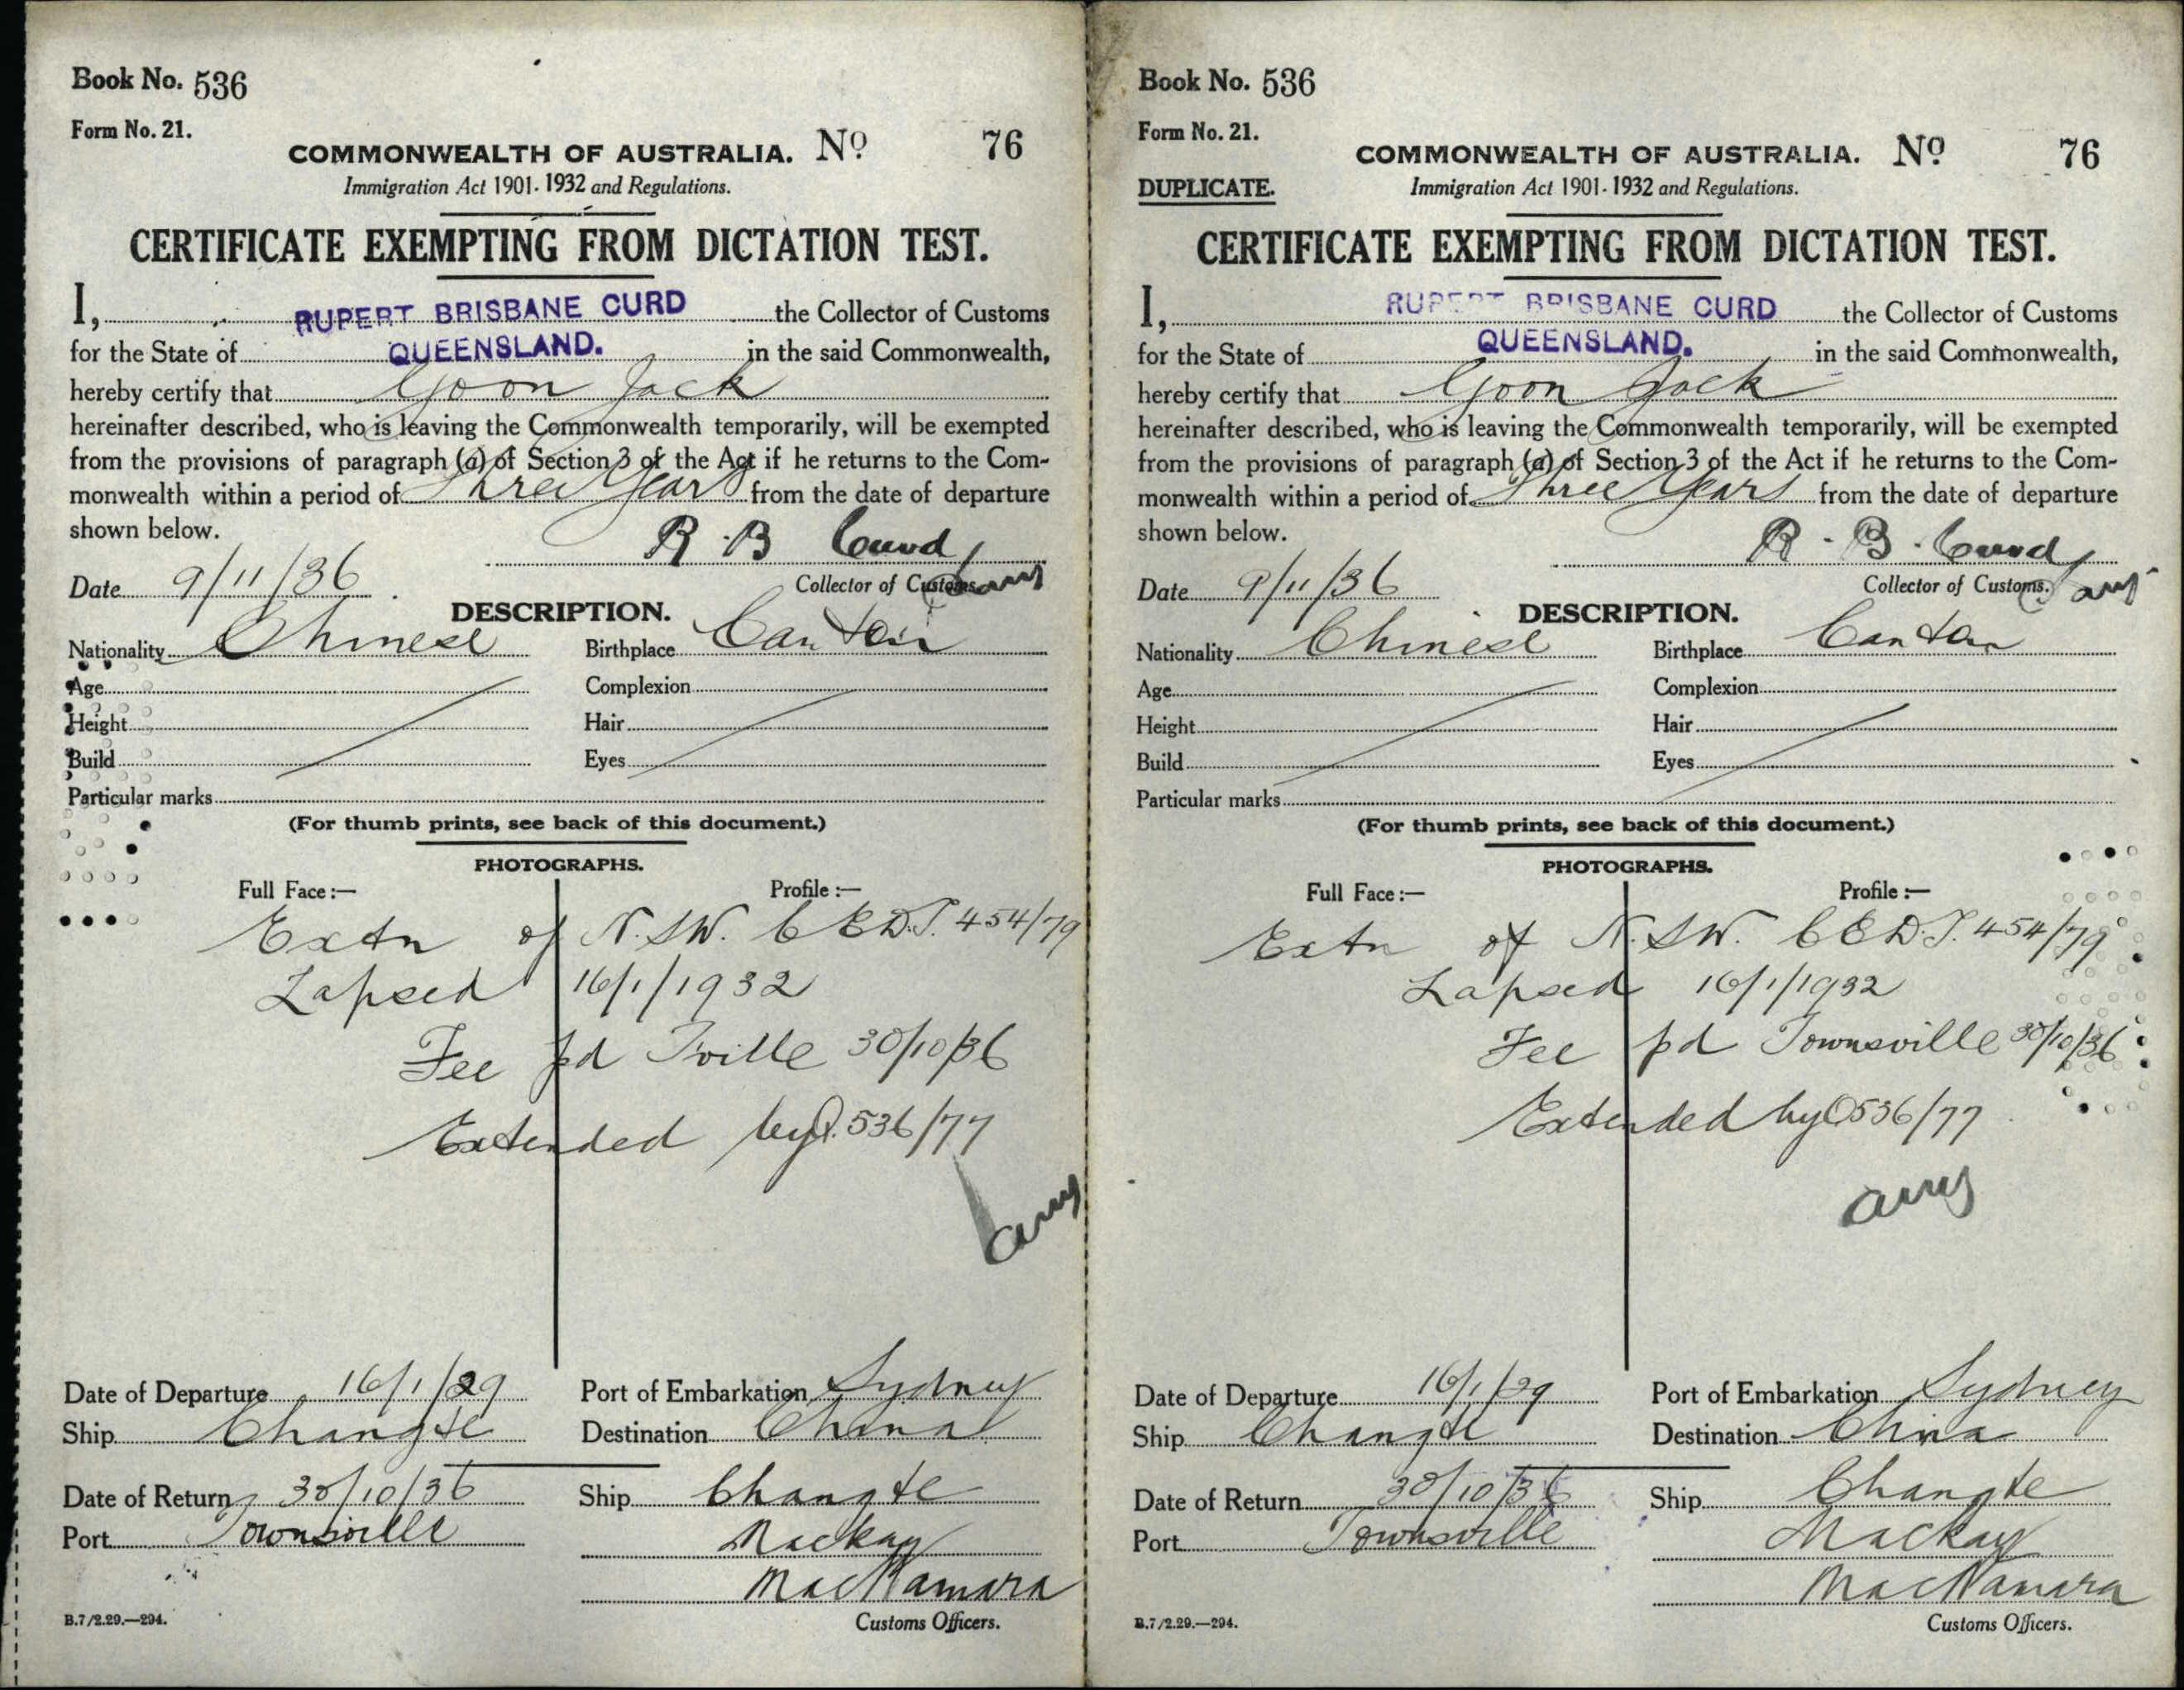 Book No. 536
Form No. 21.
COMMONWEALTH OF AUSTRALIA. No 76
Immigration Act 1901-1932 and Regulations.
CERTIFICATE EXEMPTING FROM DICTATION TEST.
I, RUPERT BRISBANE CURD the Collector of Customs
for the State of QUEENSLAND. in the said Commonwealth,
hereby certify that Goon Jack
hereinafter described, who is leaving the Commonwealth temporarily, will be exempted
from the provisions of paragraph (a) of Section 3 of the Act if he returns to the Com-
monwealth within a period of Three Years from the date of departure
shown below.
R. B Curd
Date 9/11/36 Collector of Customs.
DESCRIPTION.
Nationality Chinese Birthplace Canton
Age Complexion
Height Hair
Build Eyes
Particular marks
(For thumb prints, see back of this document.)
PHOTOGRAPHS.
Full Face:— Profile:—
Extn of N.SW. CEDT. 454/79
Lapsed 16/1/1932
Fee pd Tville 30/10/36
Extended by Q.536/77
Date of Departure 16/1/29 Port of Embarkation Sydney
Ship Changte Destination China
Date of Return 30/10/36 Ship Changte
Port Townsville Mackay
MacNamara
B.7/2.29.—294. Customs Officers.
Book No. 536
Form No. 21.
COMMONWEALTH OF AUSTRALIA. No 76
DUPLICATE. Immigration Act 1901-1932 and Regulations.
CERTIFICATE EXEMPTING FROM DICTATION TEST.
I, RUPERT BRISBANE CURD the Collector of Customs
for the State of QUEENSLAND. in the said Commonwealth,
hereby certify that Goon Jack
hereinafter described, who is leaving the Commonwealth temporarily, will be exempted
from the provisions of paragraph (a) of Section 3 of the Act if he returns to the Com-
monwealth within a period of Three Years from the date of departure
shown below.
R. B. Curd
Date 9/11/36 Collector of Customs.
DESCRIPTION.
Nationality Chinese Birthplace Canton
Age Complexion
Height Hair
Build Eyes
Particular marks
(For thumb prints, see back of this document.)
PHOTOGRAPHS.
Full Face:— Profile:—
Extn of N.SW. CEDT. 454/79
Lapsed 16/1/1932
Fee pd Townsville 30/10/36
Extended by Q536/77
Date of Departure 16/1/29 Port of Embarkation Sydney
Ship Changte Destination China
Date of Return 30/10/36 Ship Changte
Port Townsville Mackay
MacNamara
B.7/2.29.—294. Customs Officers.